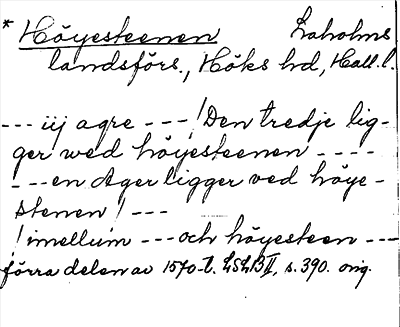 * Höyesteenen Laholms
landsförs., Höks hd, Hall. l.
--- iij agre --- ! Den tredje lig-
ger wed höyesteenen ----
--- en Ager ligger ved höye-
stenen ! ---
! imellum --- och höyesteen ---
förra delen av 1570-t. LSLB II, s. 390. orig.